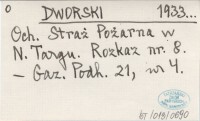 0 DWORSKI 1933...
Och. Straż Pożarna w
N. Targu. Rozkaz nr. 8.
– Gaz. Podh. 21, nr 4.